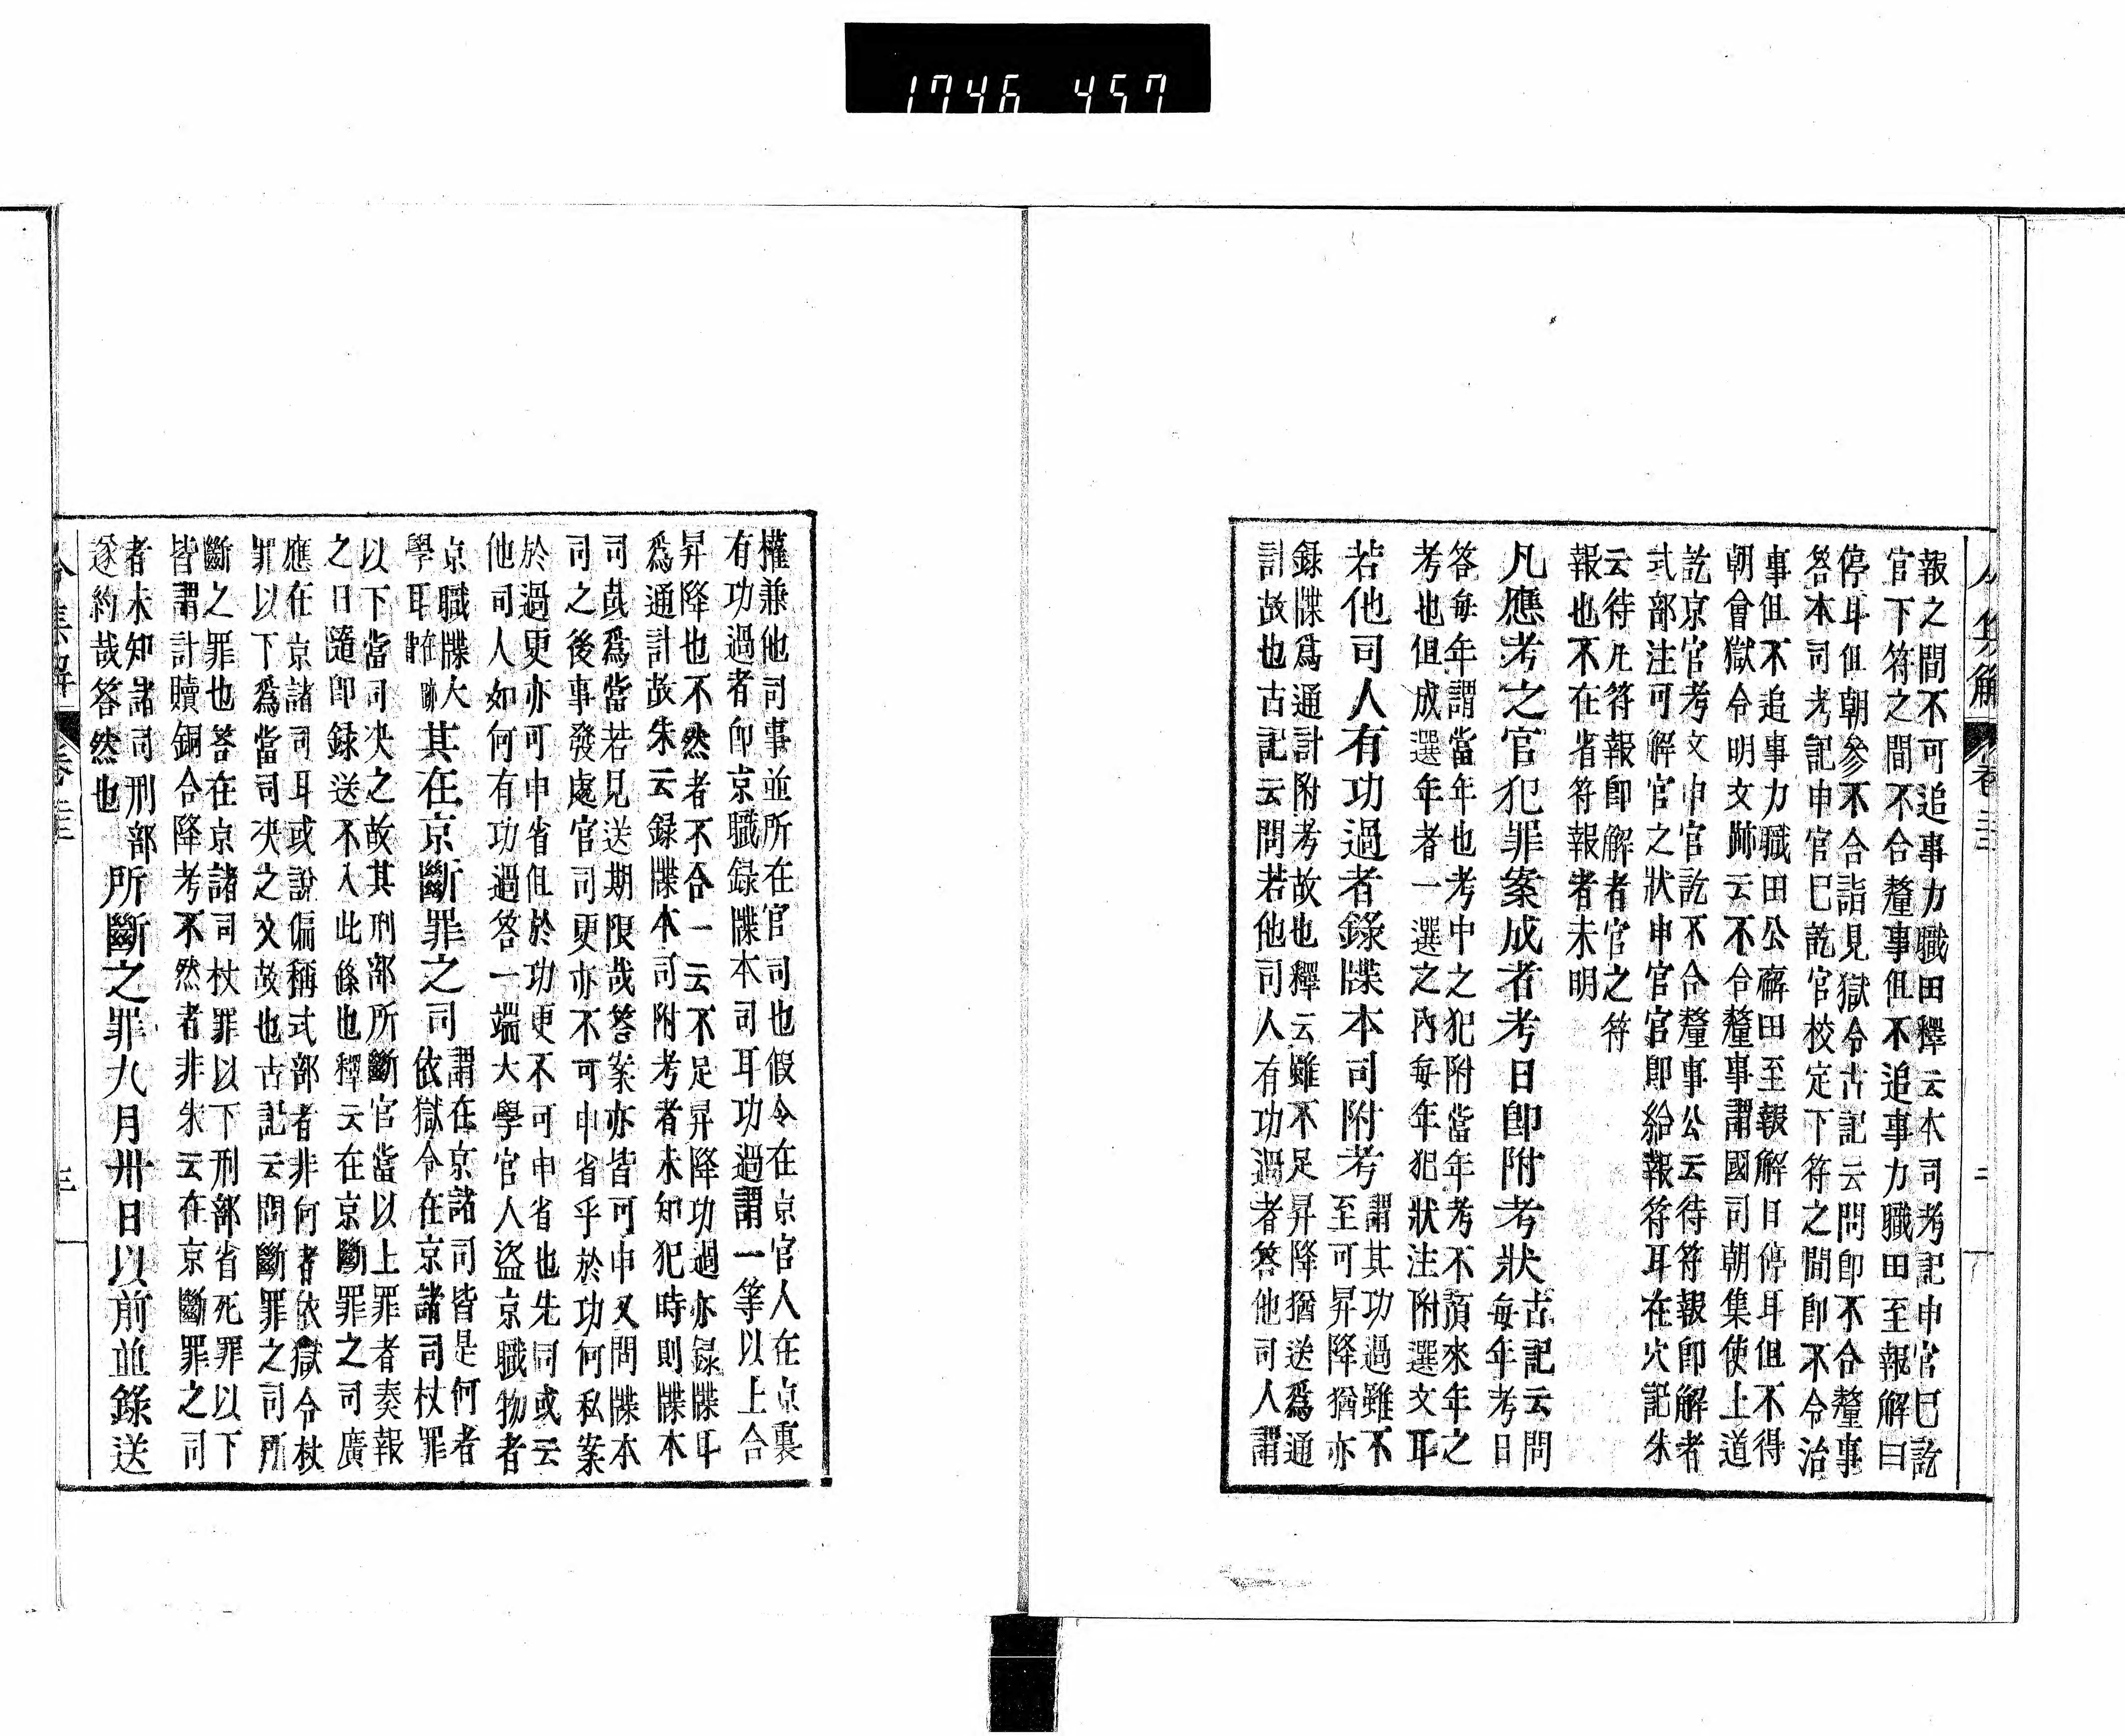 1746 457
令集解 卷二十二 二
報之間不可追事力職田釋云本司考記申官已訖
官下符之間不合釐事但不追事力職田至報解曰
停耳但朝參不合詣見獄令古記云問即不合釐事
答本司考記申官已訖官校定下符之間即不令治
事但不追事力職田公廨田至報解日停耳但不得
朝會獄令明文跡云不合釐事謂國司朝集使上道
訖京官考文申官訖不合釐事公云待符報即解者
式部注可解官之狀申官官即給報符耳在穴記朱
云待凡符報即解者官之符
報也不在省符報者未明
凡應考之官犯罪案成者考日即附考狀
古記云問
每年考日
答每年謂當年也考中之犯附當年考不須來年之
考也但成選年者一選之內每年犯狀注附選文耳
若他司人有功過者錄牒本司附考
謂其功過雖不
至可昇降猶亦
録牒爲通計附考故也釋云雖不足昇降猶送爲通
計故也古記云問若他司人有功過者答他司人謂
權兼他司事並所在官司也假令在京官人在京裏
有功過者即京職録牒本司耳功過謂一等以上合
昇降也不然者不合一云不足昇降功過亦録牒耳
爲通計故朱云録牒本司附考者未知犯時則牒本
司哉爲當若見送期限哉答案亦皆可申又問牒本
司之後事發處官司更亦不可申省乎於功何私案
於過更亦可申省但於功更不可申省也先同或云
他司人如何有功過答一端大學官人盜京職物者
京職牒大
學耳在跡背
其在京斷罪之司
謂在京諸司皆是何者
依獄令在京諸司杖罪
以下當司决之故其刑部所斷官當以上罪者奏報
之日隨即録送不入此條也釋云在京斷罪之司廣
應在京諸司耳或說偏稱式部者非何者依獄令杖
罪以下爲當司决之文故也古記云問斷罪之司所
斷之罪也答在京諸司杖罪以下刑部省死罪以下
皆謂計贖銅合降考不然者非朱云在京斷罪之司
者未知諸司刑部
逐約哉答然也
所斷之罪九月卅日以前並錄送
令集解 卷二十二 三